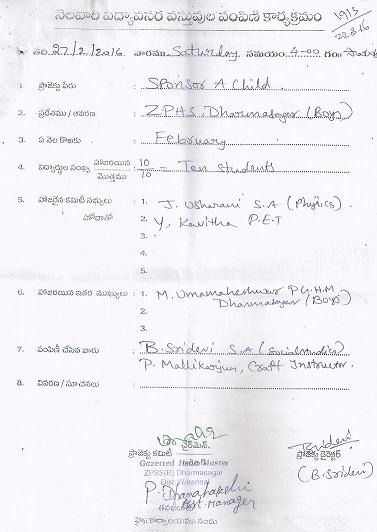 నెలవారి విద్యావసర వస్తువుల పంపిణీ కార్యక్రమం
22.8.16
తేది. 27/2/2016 వారము Saturday సమయం. 4-00 గం॥
1. ప్రాజెక్టు పేరు : Sponsor A Child
2. ప్రదేశము / ఆవరణ : ZPHS, Dharmasagar (Boys)
3. ఏ నెల కొఱకు : February
4. విద్యార్థుల సంఖ్య హాజరయిన / మొత్తము : 10/10 = Ten Students
5. హాజరైన కమిటీ సభ్యులు : 1. J. Usharani S.A (Physics).
హోదాతో 2. Y. Kavitha P.E.T
3.
4.
5.
6. హాజరయిన ఇతర ముఖ్యులు : 1. M. Umamaheshwar P G.H.M
Dharmasagar (Boys)
2.
3.
7. పంపిణీ చేసిన వారు : B. Sridevi S.A (Social Studies)
P. Mallikarjun, Craft Instructor.
8. వివరణ / సూచనలు :
చైర్మెన్,
ప్రాజెక్టు కమిటీ
Sridevi
ప్రాజెక్టు డైరెక్టర్
(B. Sridevi)
Gazetted Head Master
ZPSS(B) Dharmasagar
Dist. Warangal
P. Dhanalakshmi
Asst. Manager